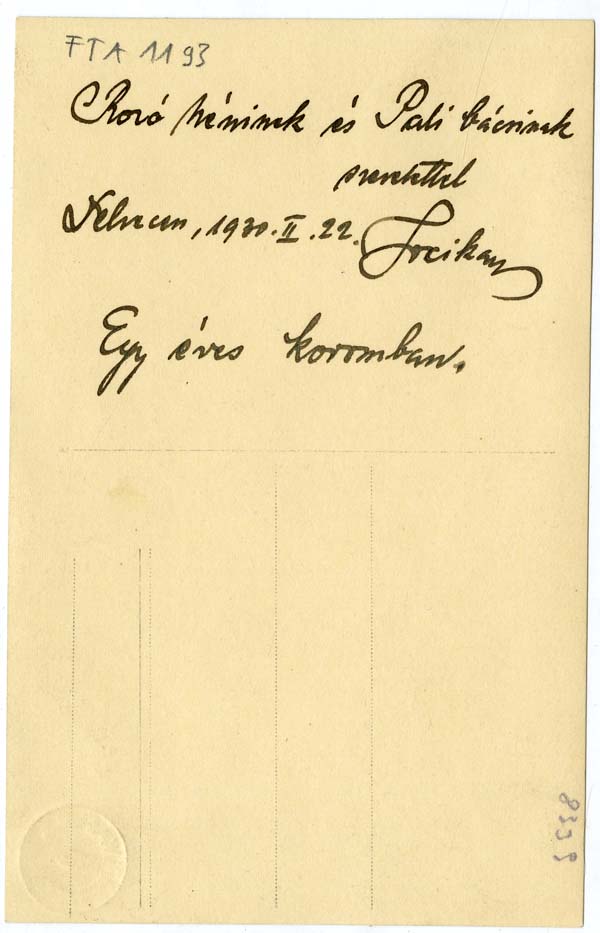 FTA 1193
Rózó néninek és Pali bácsinak
szeretettel
Debrecen, 1930. II. 22.
Egy éves koromban.
8339